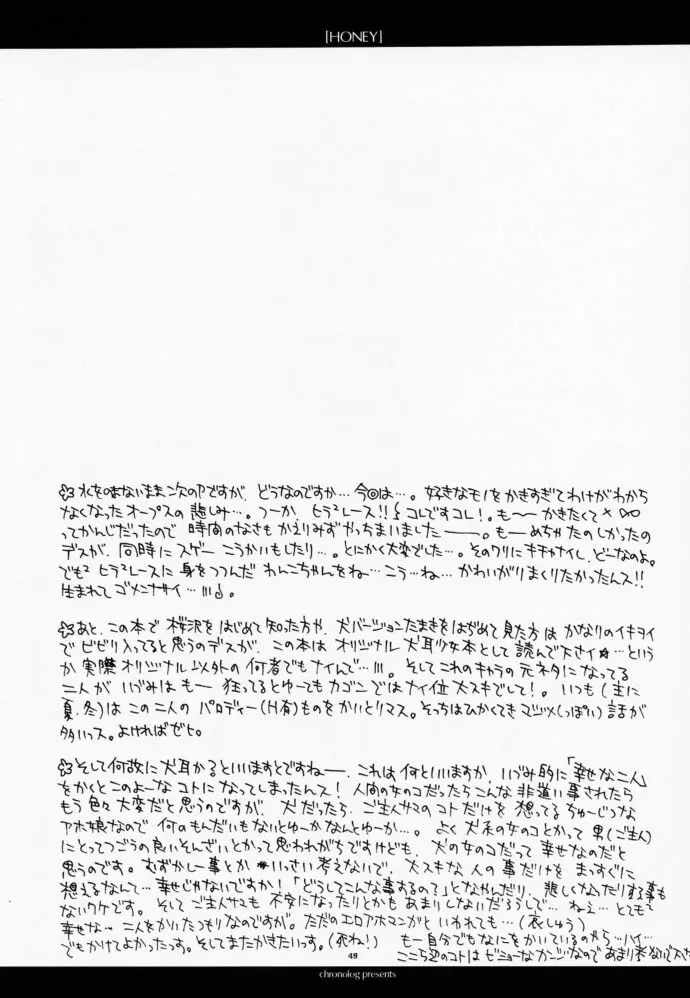 [HONEY]
水をのまないまま次のPですが、どうなのですか…今回は…。好きなモノをかきすぎてわけがわから
なくなったオープスの悲しみ…。つーか、ヒラ²レース!! コレですコレ!。も〜〜かきたくて
ってかんじだったので 時間のなさもかえりみずやっちまいましたーー。もーめちゃたのしかったの
デスが、同時にスゲー こうかいもしたり…。とにかく大変でした…。そのワリにキチャナイし、どーなのよ。
でも² ヒラ²レースに身をつつんだ わんこちゃんをね…こう…ね… かわいがりまくりたかったんス!!
生まれて ゴメンナサイ…
あと、この本で 桜沢をはじめて知った方や、犬バージョンたまきをはぢめて見た方は かなりのイキヲイ
で ビビリ入ってると思うのデスが、この本は オリジナル 犬耳少女本として 読んで下さイ☆…という
か 実際オリジナル以外の何者でもナイんで…。そしてこれのキャラの元ネタになってる
二人が いづみはもー 狂ってるとゆーてもカゴンではナイ位 大スキでして!。いつも(主に
夏、冬)は この二人の パロディー(H有)ものを かいとりマス。そっちはひかくてきマジメ(っぽい)話が
多いっス。よければゼヒ。
そして何故に犬耳かるといいますとですねー、これは何といいますか、いづみ的に「幸せな二人」
をかくとこのよーなコトになってしまったんス! 人間の女のコだったらこんな非道い事されたら
もう色々大変だと思うのですが、犬だったら、ご主人サマのコトだけを 想ってる ちゅーじつな
アホ娘なので 何のもんだいもないとゆーかなんとゆーか…。よく犬系の女のコとかって 男(ご主人)
にとってつごうの良いそんざいとかって思われがちですけども、犬の女のコだって 幸せなのだと
思うのです。むずかしー事とか いっさい考えないで、大スキな人の事だけを まっすぐに
想えるなんて…幸せじゃないですか!「どうしてこんな事するの?」となやんだり、悲しくなったりする事も
ないワケです。そしてご主人サマも 不安になったりとかも あまりしないだろうしで… ねぇ… とても
幸せな… 二人をかいたつもりなのですが。ただのエロアホマンガと いわれても…(哀しゅう)
でもかけてよかったっす。そしてまたかきたいっす。(死ね!) もー自分でもなにをかいているのやら…ハイ…
ここら辺のコトは ビミョーな
49
chronolog presents